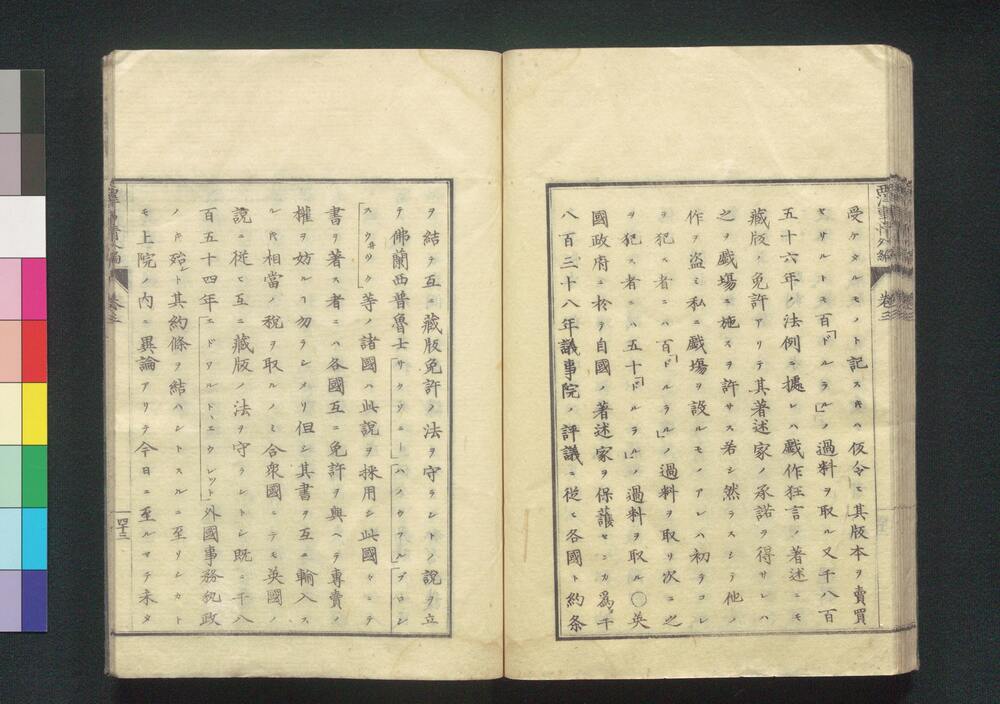 西洋事情外編 卷三
受ケタルモノト記スキハ仮令ヒ其版本ヲ賣買
セサルトモ百「ドルラル」ノ過料ヲ取ル又千八百
五十六年ノ法例ニ據レハ戯作狂言ノ著述ニモ
藏版ノ免許アリテ其著述家ノ承諾ヲ得サレハ
之ヲ戯場ニ施スヲ許サス若シ然ラスシテ他ノ
作ヲ盗ミ私ニ戯場ヲ設ルモノアレハ初テコレ
ヲ犯ス者ニハ百「ドルラル」ノ過料ヲ取リ次ニ之
ヲ犯ス者ニハ五十「ドルラル」ノ過料ヲ取ル〇英
國政府ニ於テ自國ノ著述家ヲ保護センカ爲メ千
八百三十八年議事院ノ評議ニ從ヒ各國ト約条
ヲ結テ互ニ藏版免許ノ法ヲ守ラントノ說ヲ立
テ佛蘭西普魯士「サクソニー」「ハノウフル」「ブロン
スウ井ツク」等ノ諸國ハ此說ヲ採用シ此國々ニテ
書ヲ著ス者ニハ各國互ニ免許ヲ與ヘテ專賣ノ
權ヲ妨ルヿ勿ラシメリ但シ其書ヲ互ニ輸入ス
ルキ相當ノ稅ヲ取ルノミ合衆國ニテモ英國ノ
說ニ從ヒ互ニ藏版ノ法ヲ守ラントシ既ニ千八
百五十四年「ヱドワルド、ヱウレット」外國事務執政
ノキ殆ント其約條ヲ結ハントスルニ至リシカト
モ上院ノ内ニ異論アリテ今日ニ至ルマテ未タ
卷三
四十三